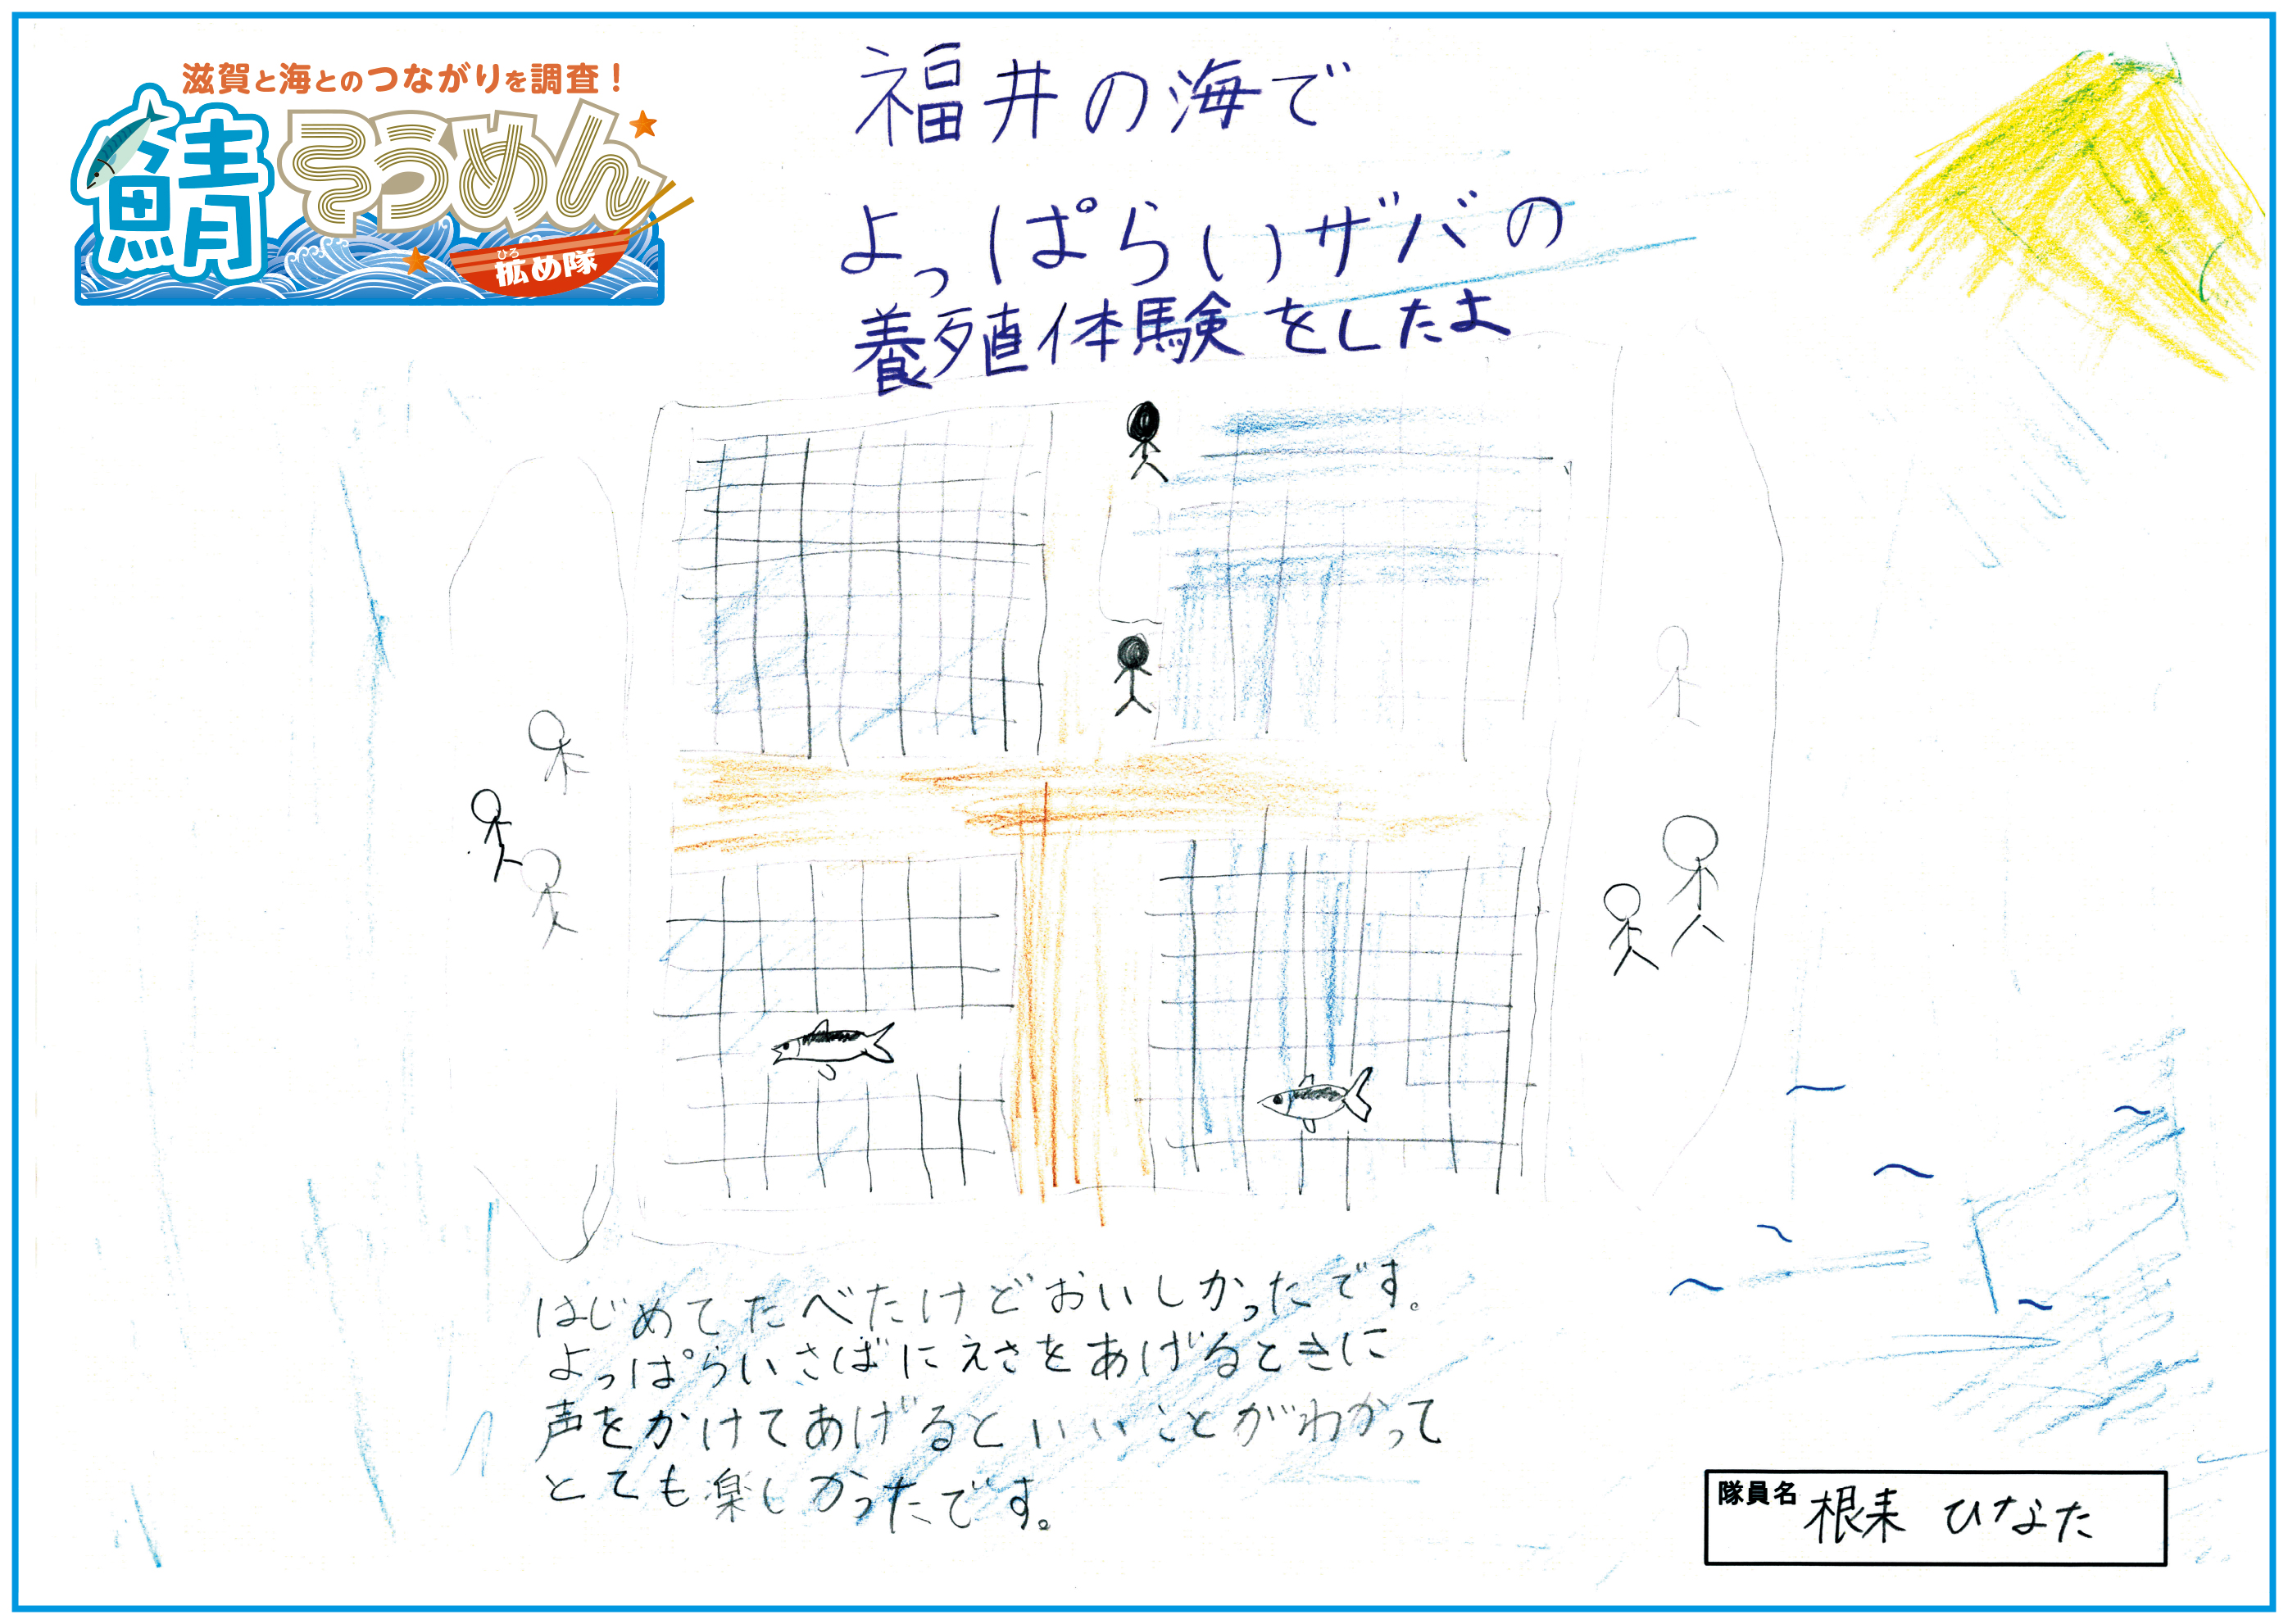 滋賀と海とのつながりを調査！
鯖そうめん
ひろ
拡め隊
福井の海で
よっぱらいサバの
養殖体験をしたよ
はじめてたべたけどおいしかったです。
よっぱらいさばにえさをあげるときに
声をかけてあげるといいことがわかって
とても楽しかったです。
隊員名 根来 ひなた